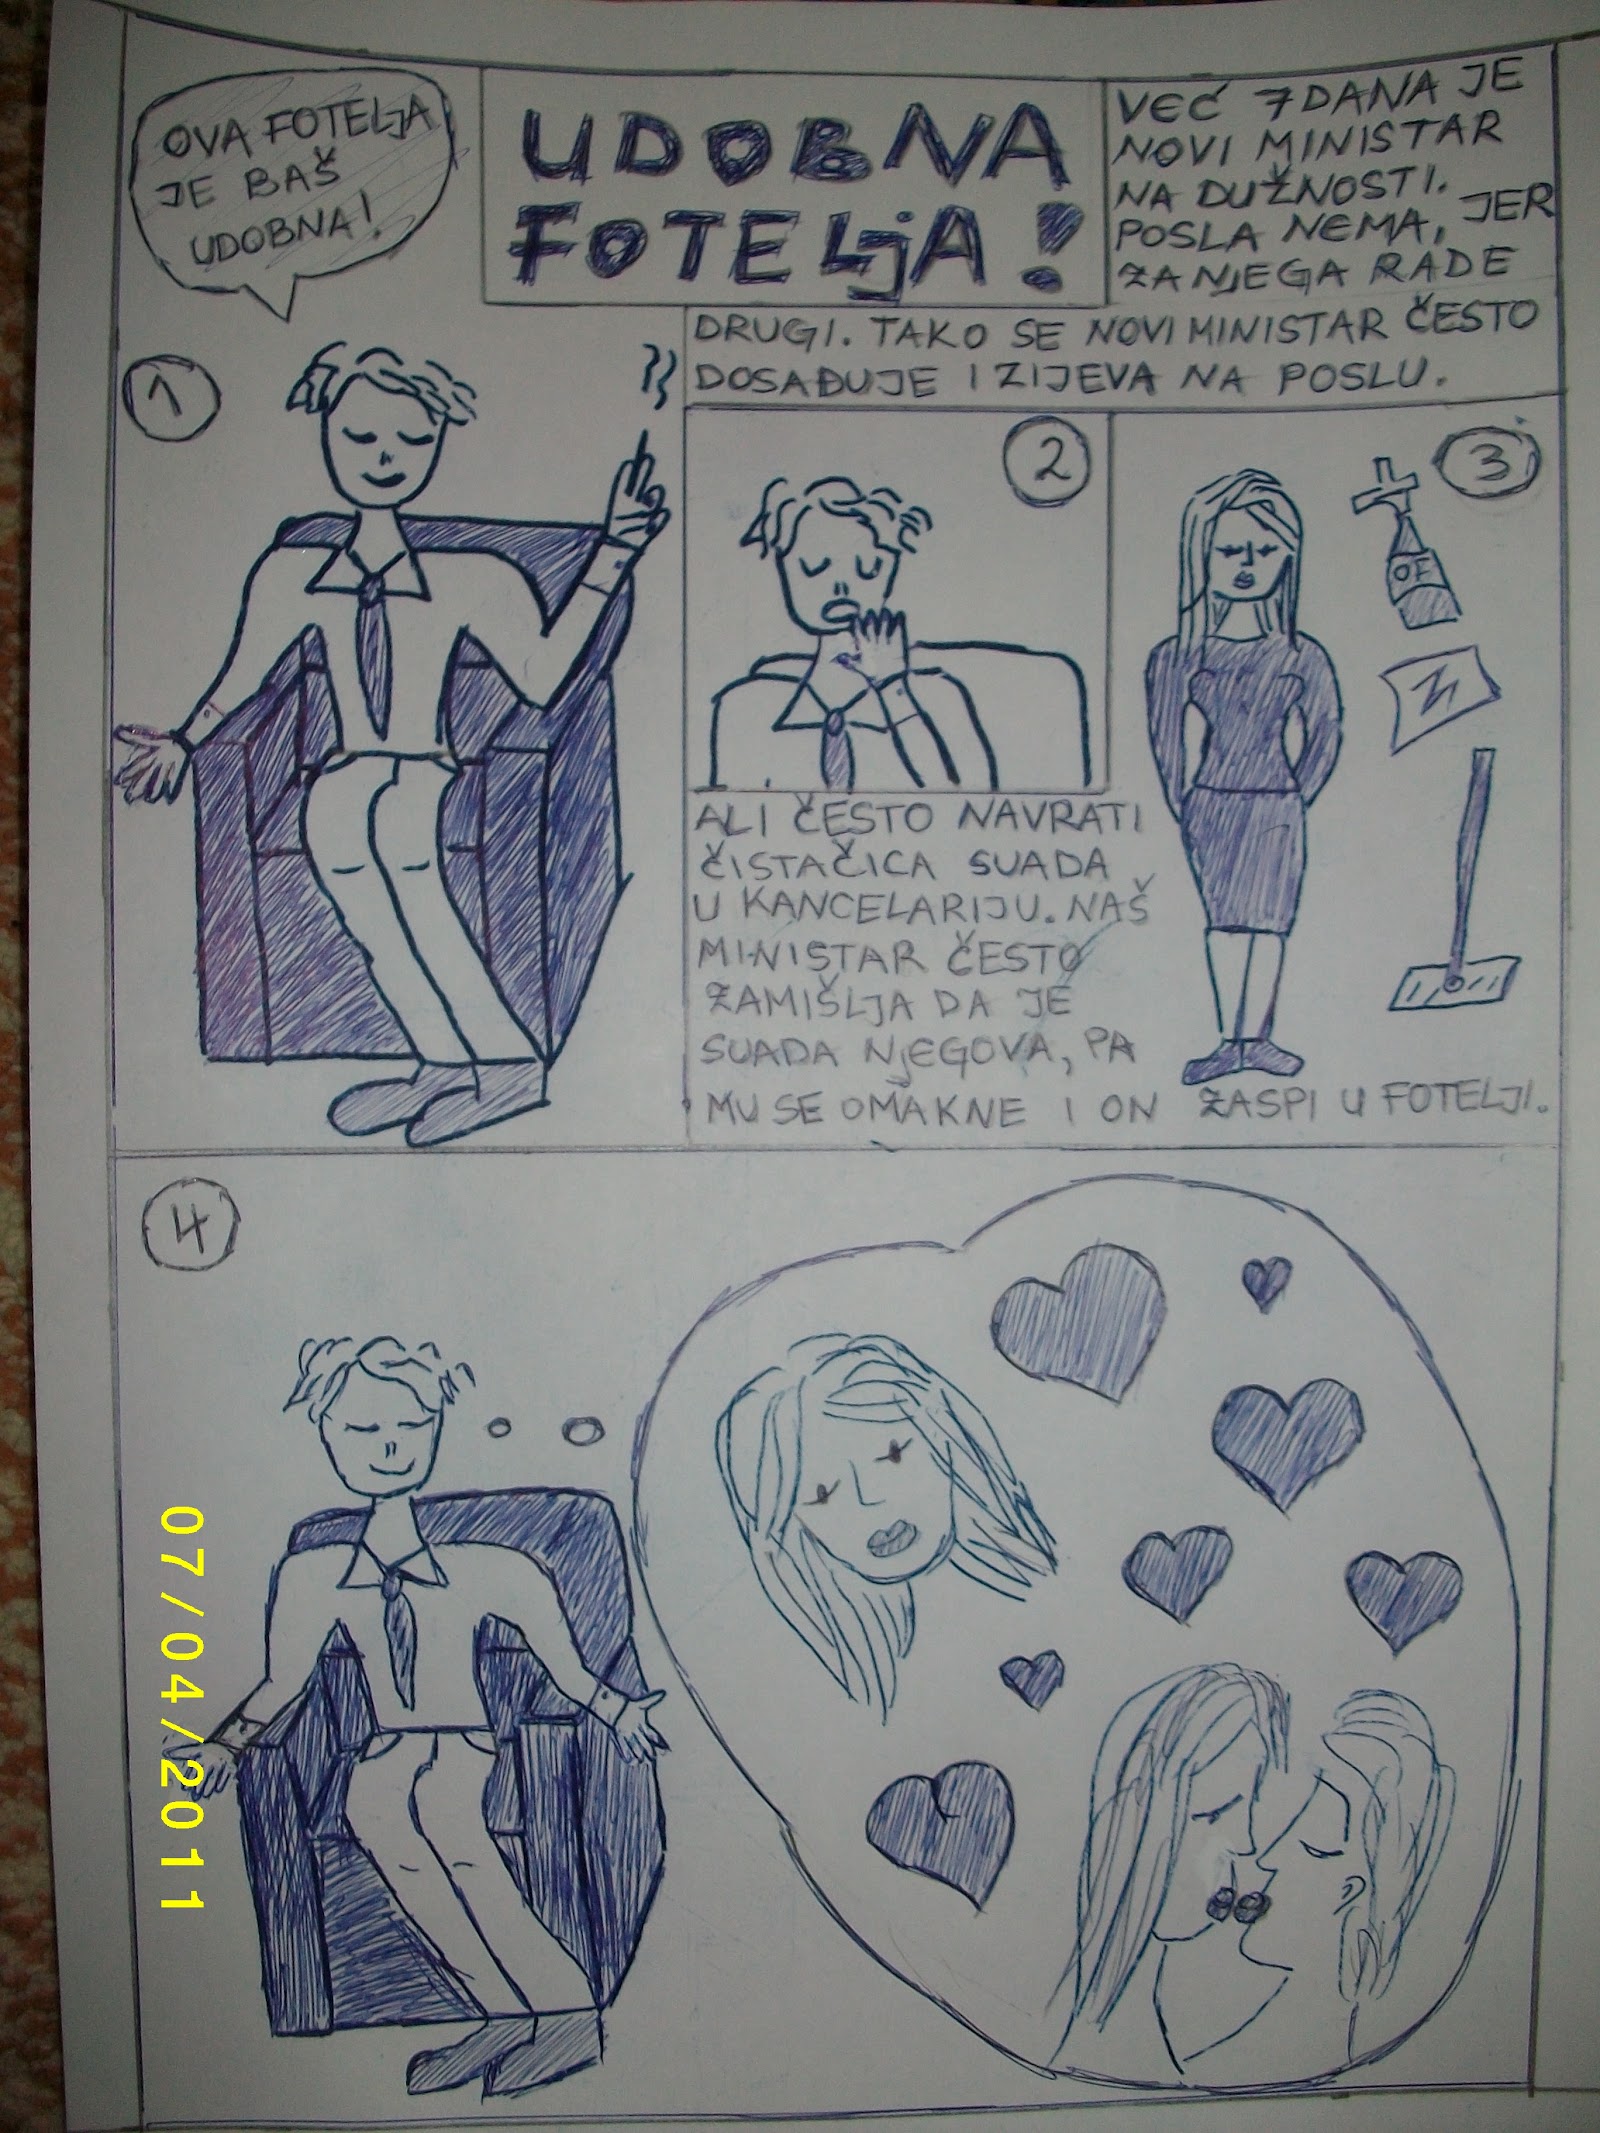 OVA FOTELJA
JE BAŠ
UDOBNA!
UDOBNA
FOTELJA!
VEĆ 7 DANA JE
NOVI MINISTAR
NA DUŽNOSTI.
POSLA NEMA, JER
ZA NJEGA RADE
DRUGI. TAKO SE NOVI MINISTAR ČESTO
DOSAĐUJE I ZIJEVA NA POSLU.
1
2
3
OF
ALI ČESTO NAVRATI
ČISTAČICA SUADA
U KANCELARIJU. NAŠ
MINISTAR ČESTO
ZAMIŠLJA DA JE
SUADA NJEGOVA, PA
MU SE OMAKNE I ON ZASPI U FOTELJI.
4
07/04/2011